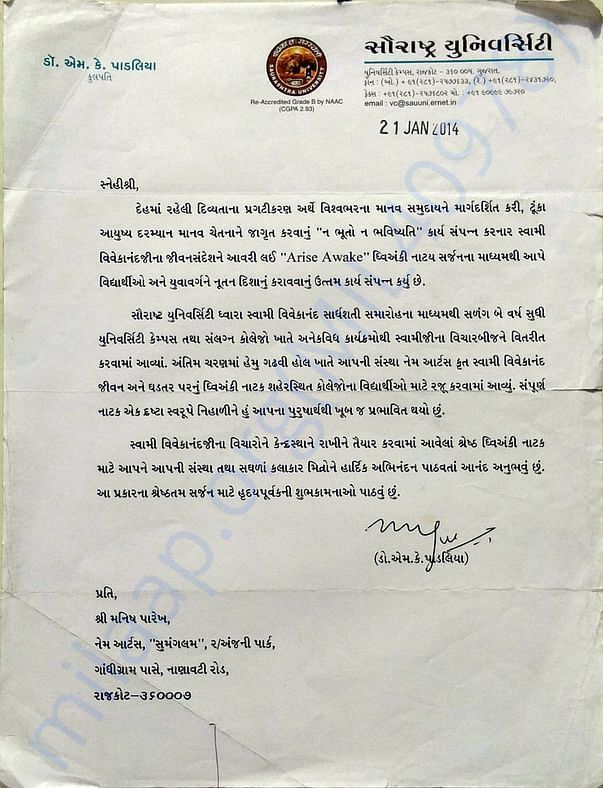 ડૉ. એમ. કે. પાડલિયા
કુલપતિ
SAURASHTRA UNIVERSITY
Re-Accredited Grade B by NAAC
(CGPA 2.93)
સૌરાષ્ટ્ર યુનિવર્સિટી
યુનિવર્સિટી કેમ્પસ, રાજકોટ - ૩૬૦ ૦૦૫. ગુજરાત.
email : vc@sauuni.ernet.in
21 JAN 2014
સ્નેહીશ્રી,
દેહમાં રહેલી દિવ્યતાના પ્રગટીકરણ અર્થે વિશ્વભરના માનવ સમુદાયને માર્ગદર્શિત કરી, ટૂંકા
આયુષ્ય દરમ્યાન માનવ ચેતનાને જાગૃત કરવાનું "ન ભૂતો ન ભવિષ્યતિ" કાર્ય સંપન્ન કરનાર સ્વામી
વિવેકાનંદજીના જીવનસંદેશને આવરી લઈ "Arise Awake" ધ્વિઅંકી નાટય સર્જનના માધ્યમથી આપે
વિદ્યાર્થીઓ અને યુવાવર્ગને નૂતન દિશાનું કરાવવાનું ઉત્તમ કાર્ય સંપન્ન કર્યુ છે.
સૌરાષ્ટ્ર યુનિવર્સિટી ધ્વારા સ્વામી વિવેકાનંદ સાર્ધશતી સમારોહના માધ્યમથી સળંગ બે વર્ષ સુધી
યુનિવર્સિટી કેમ્પસ તથા સંલગ્ન કોલેજો ખાતે અનેકવિધ કાર્યક્રમોથી સ્વામીજીના વિચારબીજને વિતરીત
કરવામાં આવ્યાં. અંતિમ ચરણમાં હેમુ ગઢવી હોલ ખાતે આપની સંસ્થા નેમ આર્ટસ કૃત સ્વામી વિવેકાનંદ
જીવન અને ઘડતર પરનું ધ્વિઅંકી નાટક શહેરસ્થિત કોલેજોના વિદ્યાર્થીઓ માટે રજૂ કરવામાં આવ્યું. સંપૂર્ણ
નાટક એક દ્રષ્ટા સ્વરૂપે નિહાળીને હું આપના પુરુષાર્થથી ખૂબ જ પ્રભાવિત થયો છું.
સ્વામી વિવેકાનંદજીના વિચારોને કેન્દ્રસ્થાને રાખીને તૈયાર કરવામાં આવેલાં શ્રેષ્ઠ ધ્વિઅંકી નાટક
માટે આપને આપની સંસ્થા તથા સઘળાં કલાકાર મિત્રોને હાર્દિક અભિનંદન પાઠવતાં આનંદ અનુભવું છું.
આ પ્રકારના શ્રેષ્ઠતમ સર્જન માટે હૃદયપૂર્વકની શુભકામનાઓ પાઠવું છું.
(ડો.એમ.કે.પાડલિયા)
પ્રતિ,
શ્રી મનિષ પારેખ,
નેમ આર્ટસ, "સુમંગલમ", ૨/અંજની પાર્ક,
ગાંધીગ્રામ પાસે, નાણાવટી રોડ,
રાજકોટ-૩૬૦૦૦૭